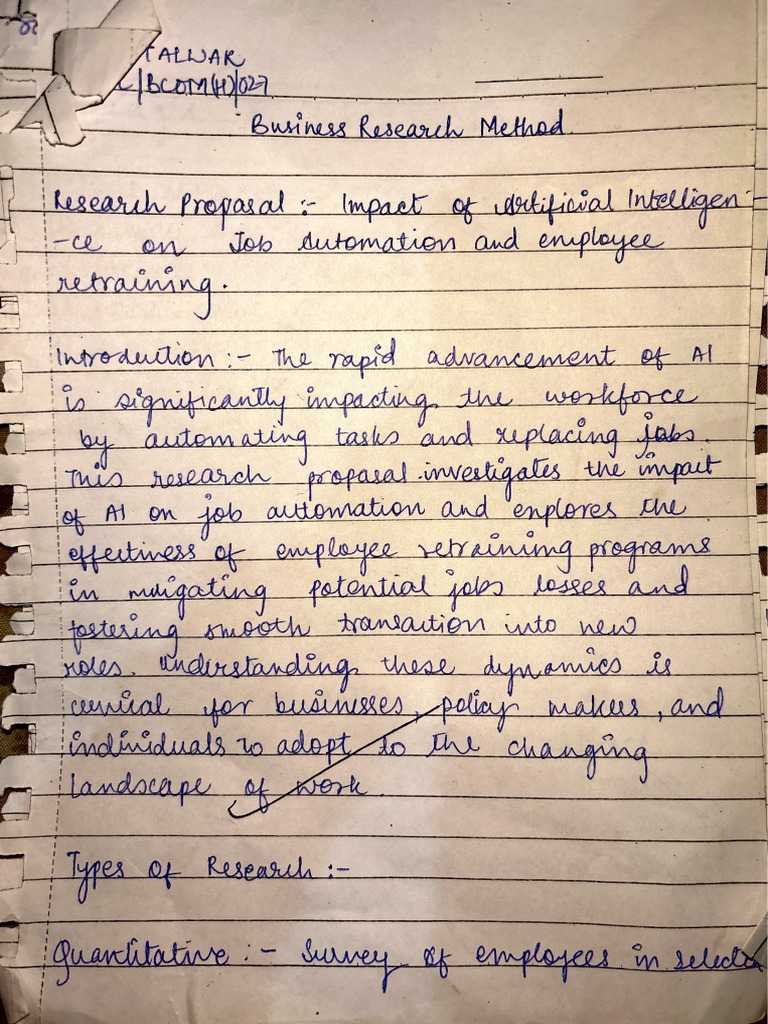 TALWAR
/BCOM(H)/027
Business Research Method
Research Proposal :- Impact of Artificial Intelligen-
-ce on Job Automation and employee
retraining.
Introduction :- The rapid advancement of AI
is significantly impacting the workforce
by automating tasks and replacing jobs.
This research proposal investigates the impact
of AI on job automation and enplores the
effectiness of employee retraining programs
in mitigating potential jobs losses and
fostering smooth transaction into new
roles. Understanding these dynamics is
crucial for businesses, policy makers, and
individuals to adopt to the changing
landscape of work.
Types of Research :-
Quantitative :- Survey of employees in selecte